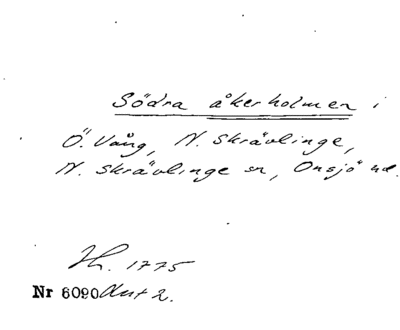 Södra åkerholmen i
Ö. Vång, N. Skrävlinge,
N. Skrävlinge sn, Onsjö hd.
Th. 1775
Nr 6090 Aut 2.